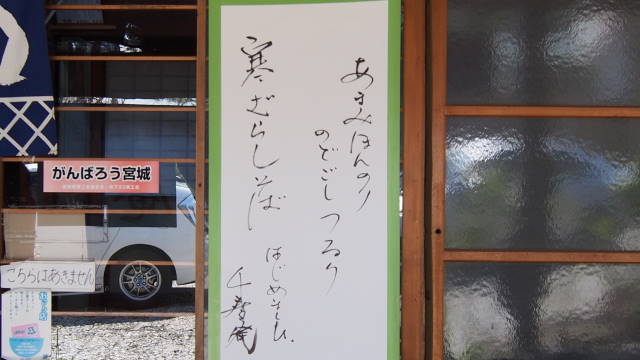 あまみほんのり
のどごしつるり
寒ざらしそば
はじめました。
千登庵
がんばろう宮城
こちらはあきません